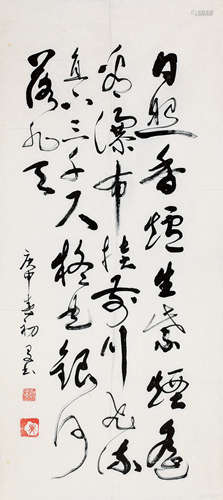 日照香爐生紫煙遙
看瀑布挂前川飛流
直下三千尺疑是銀河
落九天
庚申春初